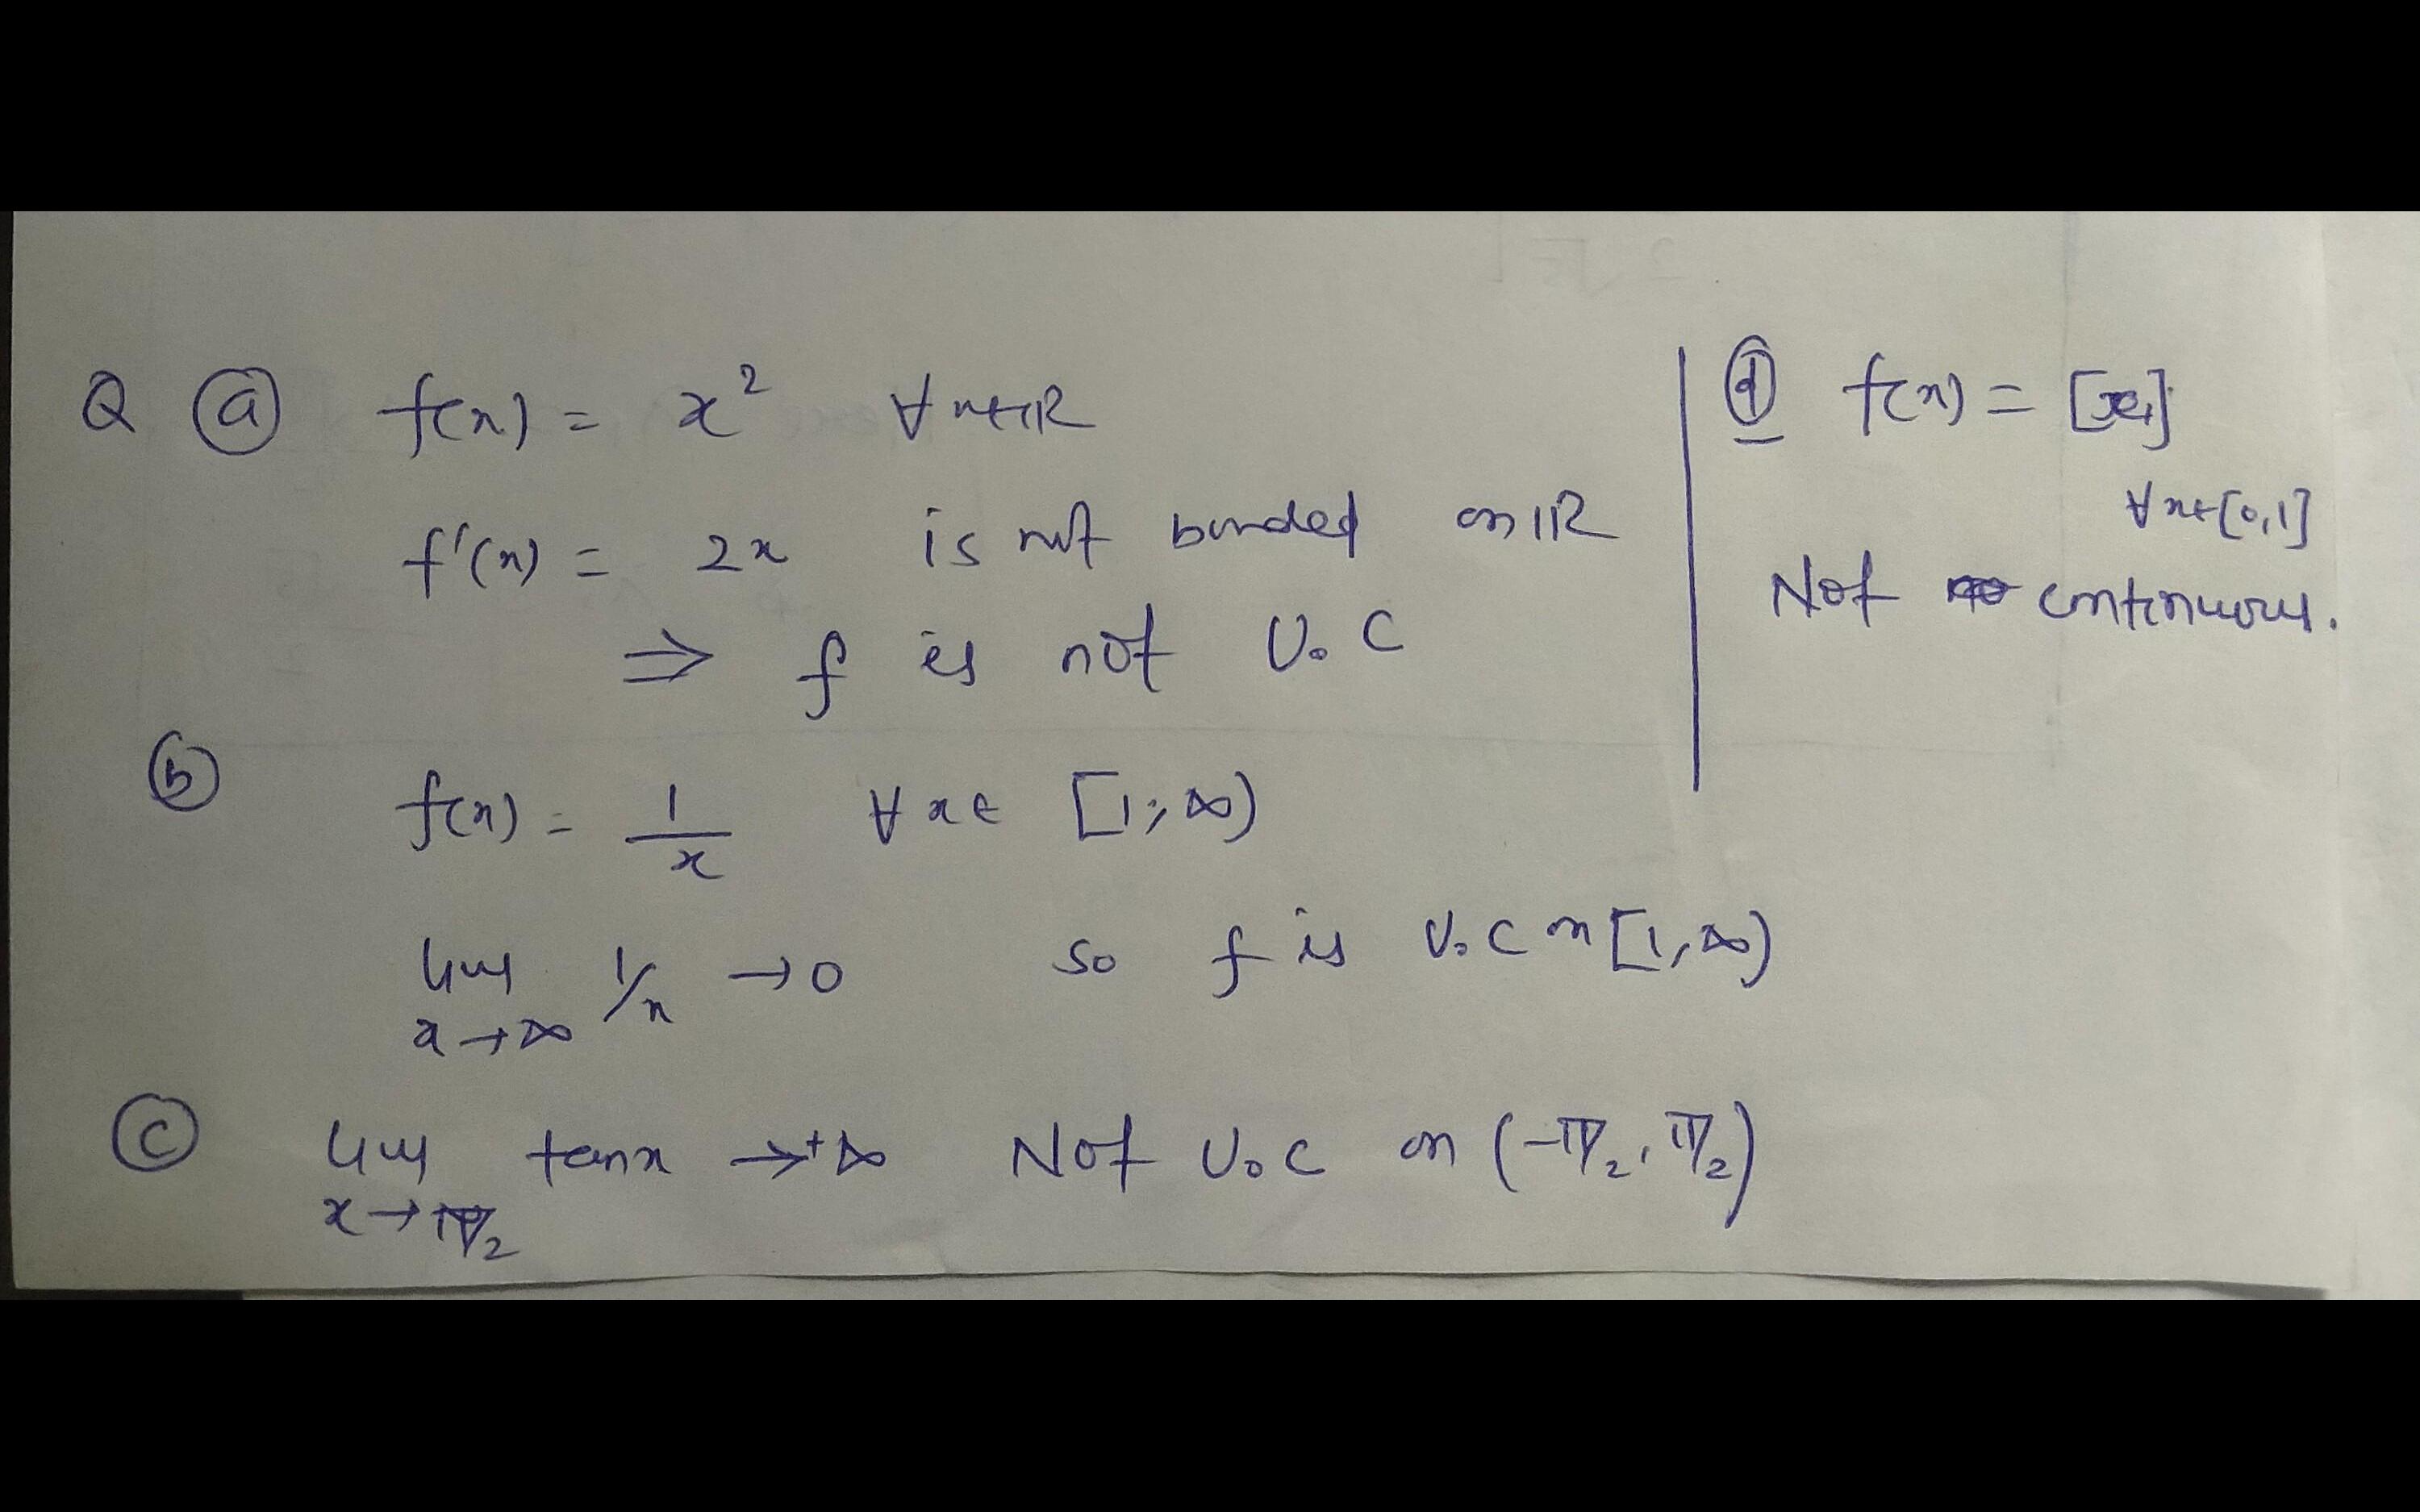 Q (a) f(x) = x² ∀ x∈ℝ
f'(x) = 2x is not bounded on ℝ
⇒ f is not U.C
(b) f(x) = 1/x ∀ x ∈ [1, ∞)
lim x→∞ 1/x → 0 so f is U.C on [1, ∞)
(c) lim x→π/2 tan x → +∞ Not U.C on (-π/2, π/2)
(d) f(x) = [x]
∀ x∈[0,1]
Not continuous.